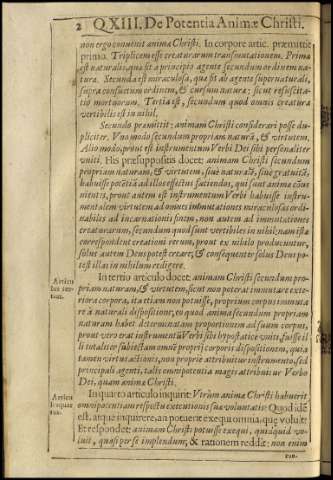 2 Q.XIII. De Potentia Animæ Christi.
non ergo conuenit animæ Christi. In corpore artic. præmittit
primo. Triplicem esse creaturarum transmutationem. Prima
est naturalis, quæ fit a principio agente secundum ordinem na-
turæ. Secunda est miraculosa, quæ fit ab agente supernaturali,
supra consuetum ordinem, & cursum naturæ: sicut resuscita-
tio mortuorum. Tertia est, secundum quod omnis creatura
vertibilis est in nihil.
Secundo præmittit: animam Christi considerari posse du-
pliciter. Vno modo secundum propriam naturã, & virtutem.
Alio modo, prout est instrumentum Verbi Dei sibi personaliter
vniti. His præsuppositis docet: animam Christi secundum
propriam naturam, & virtutem, siue naturalẽ, siue gratuitã,
habuisse potẽtiã ad illos effectus faciendos, qui sunt animæ cõue
nientes, prout autem est instrumentum Verbi habuisse instru-
mentalem virtutem ad omnes immutationes miraculosas ordi-
nabiles ad incarnationis finem, non autem ad immutationes
creaturarum, secundum quod sunt vertibiles in nihil; nam istæ
correspondent creationi rerum, prout ex nihilo producuntur,
solus autem Deus potest creare; & consequenter solus Deus po-
test illas in nihilum redigere.
In tertio articulo docet: animam Christi secundum pro-
priam naturam, & virtutem, sicut non poterat immutare exte-
riora corpora, ita etiam non potuisse, proprium corpus immuta-
re à naturali dispositione, eo quod anima secundum propriam
naturam habet determinatam proportionem ad suum corpus,
prout vero erat instrumentũ Verbi sibi hypostaticè vniti, fuisse il
li totaliter subiectam omnẽ proprij corporis dispositionem, quia
tamen virtus actionis, non propriè attribuitur instrumento, sed
principali agenti, talis omnipotentia magis attribuitur Verbo
Dei, quam animæ Christi.
In quarto articulo inquirit: Vtrùm anima Christi habuerit
omnipotentiam respectu executionis suæ voluntatis. Quod idẽ
est, atque inquirere, an potuerit exequi omnia, quæ voluit.
Et respondet: animam Christi potuisse exequi, quidquid vo-
luit, quasi per se implendum, & rationem reddit: non enim